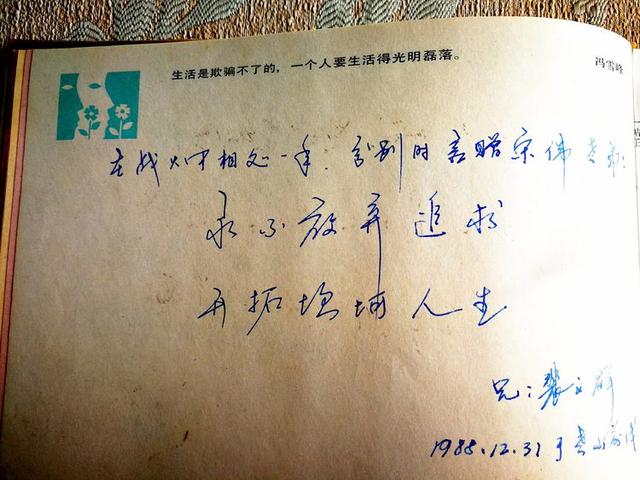 生活是欺骗不了的，一个人要生活得光明磊落。
冯雪峰
在战火中相处一年，离别时言赠宗伟老弟：
永不放弃追求
开拓坎坷人生
兄：裴文群
1988.12.31于老山前线